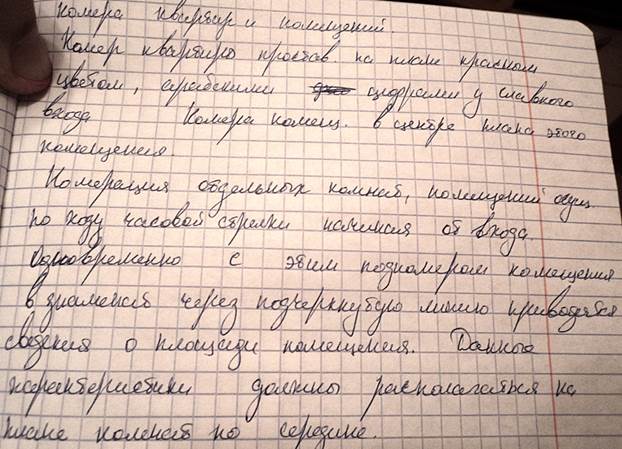 номера квартир и помещений.
Номер квартиры простав. на плане красном
цветом, арабскими цифрами у главного
входа Номера помещ. в центре плана этого
помещения.
Нумерация отдельных комнат, помещений осущ.
по ходу часовой стрелки начиная от входа.
Одновременно с этим под номером помещения
в знаменат через подчеркнутую линию приводятся
сведения о площади помещения. Данные
характеристики должны располагаться на
плане комнат по середине.